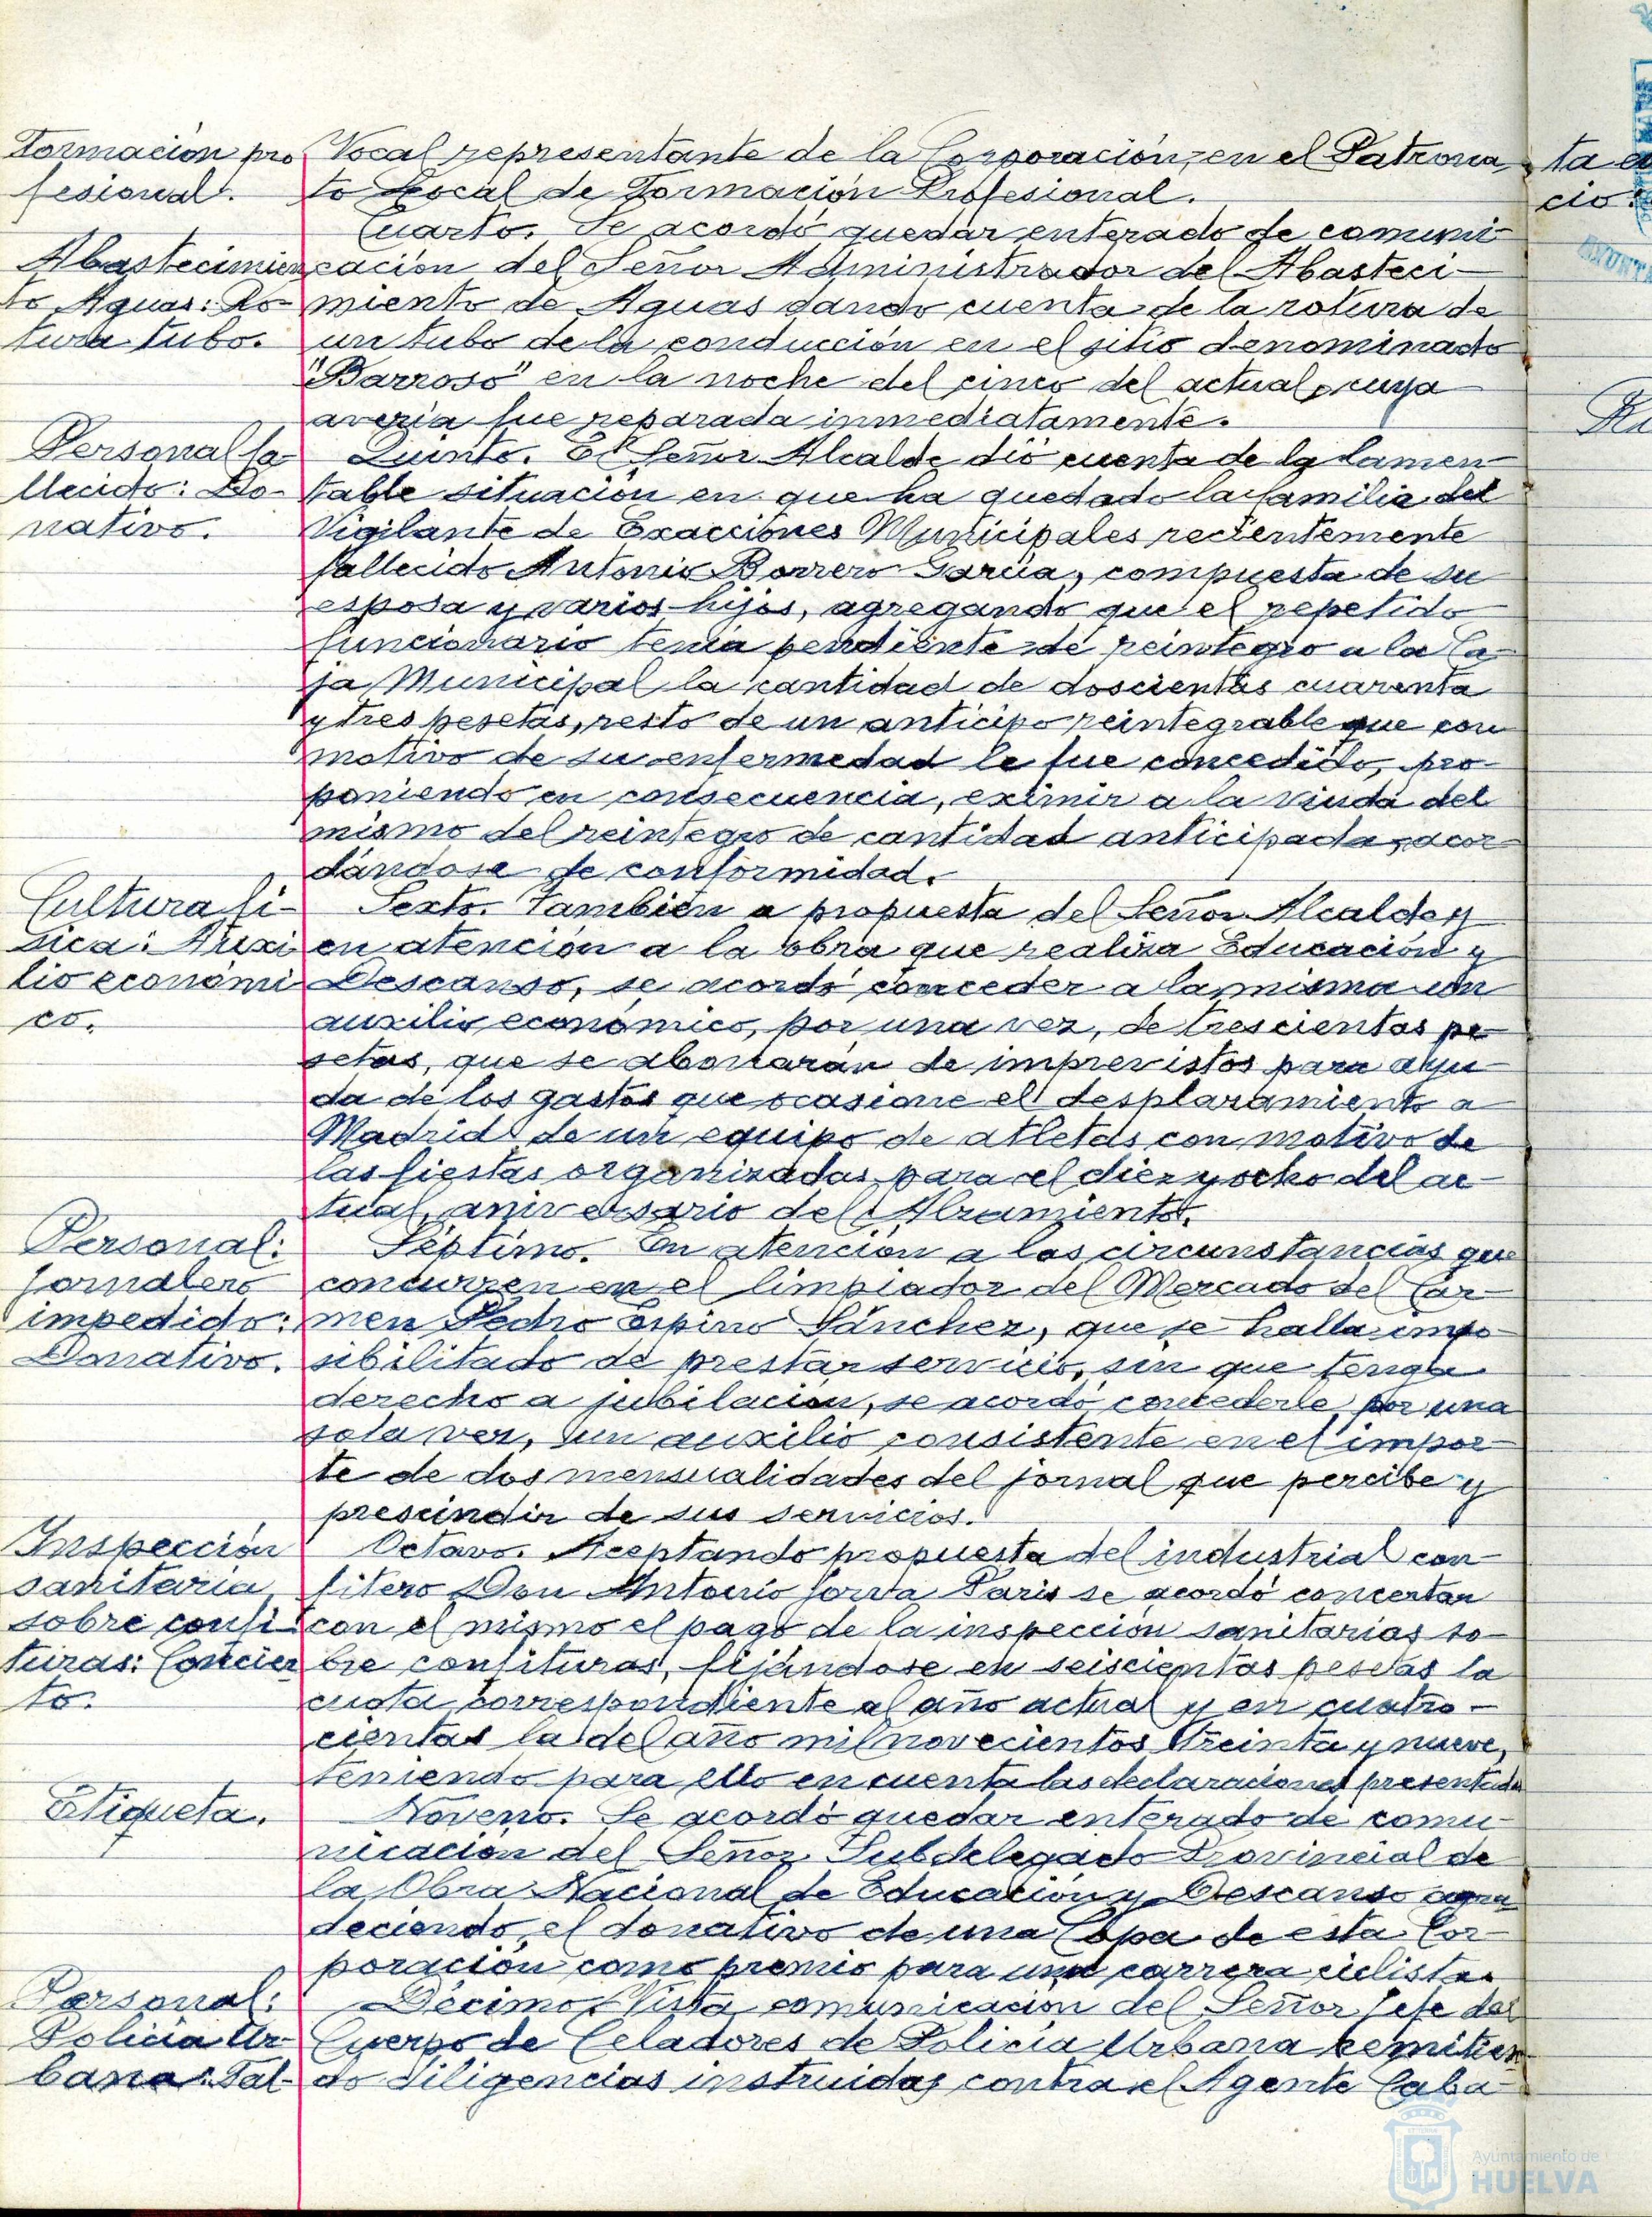 Formación pro
fesional.
Vocal representante de la Corporación, en el Patrona
to Local de Formación Profesional.
Abastecimien
to Aguas: Ro-
tura tubo.
Cuarto. Se acordó quedar enterado de comuni-
cación del Señor Administrador del Abasteci-
miento de Aguas dando cuenta de la rotura de
un tubo de la conducción en el sitio denominado
"Barroso" en la noche del cinco del actual, cuya
avería fue reparada inmediatamente.
Personal fa-
llecido: Do-
nativo.
Quinto. El Señor Alcalde dió cuenta de la lamen-
table situación en que ha quedado la familia del
Vigilante de Exacciones Municipales recientemente
fallecido Antonio Borrero García, compuesta de su
esposa y varios hijos, agregando que el repetido
funcionario tenía pendiente de reintegro a la Ca-
ja Municipal la cantidad de doscientas cuarenta
y tres pesetas, resto de un anticipo reintegrable que con
motivo de su enfermedad le fue concedido, pro-
poniendo en consecuencia, eximir a la viuda del
mismo del reintegro de cantidad anticipada, acor-
dándose de conformidad.
Cultura fí-
sica: Auxi
lio económi
co.
Sexto. También a propuesta del Señor Alcalde y
en atención a la obra que realiza Educación y
Descanso, se acordó conceder a la misma un
auxilio económico, por una vez, de trescientas pe
setas, que se abonarán de imprevistos para ayu-
da de los gastos que ocasione el desplazamiento a
Madrid de un equipo de atletas con motivo de
las fiestas organizadas para el diez y ocho del ac-
tual, aniversario del Alzamiento.
Personal:
Jornalero
impedido:
Donativo.
Séptimo. En atención a las circunstancias que
concurren en el limpiador del Mercado del Car-
men Pedro Espino Sánchez, que se halla impo-
sibilitado de prestar servicio, sin que tenga
derecho a jubilación, se acordó concederle por una
sola vez, un auxilio consistente en el impor-
te de dos mensualidades del jornal que percibe y
prescindir de sus servicios.
Inspección
sanitaria
sobre confi-
turas: Concier
to.
Octavo. Aceptando propuesta del industrial con-
fitero Don Antonio Jorva Paris se acordó concertar
con el mismo el pago de la inspección sanitarias so-
bre confituras, fijándose en seiscientas pesetas la
cuota correspondiente al año actual y en cuatro-
cientas la del año mil novecientos treinta y nueve,
teniendo para ello en cuenta las declaraciones presentadas
Etiqueta.
Noveno. Se acordó quedar enterado de comu-
nicación del Señor Subdelegado Provincial de
la Obra Nacional de Educación y Descanso agra
deciendo el donativo de una Copa de esta Cor-
poración como premio para una carrera ciclista.
Personal:
Policía Ur-
bana: Fal-
Décimo. Vista comunicación del Señor Jefe del
Cuerpo de Celadores de Policía Urbana remitien-
do diligencias instruidas contra el Agente Caba-
ta
cio:
Ayuntamiento de
HUELVA